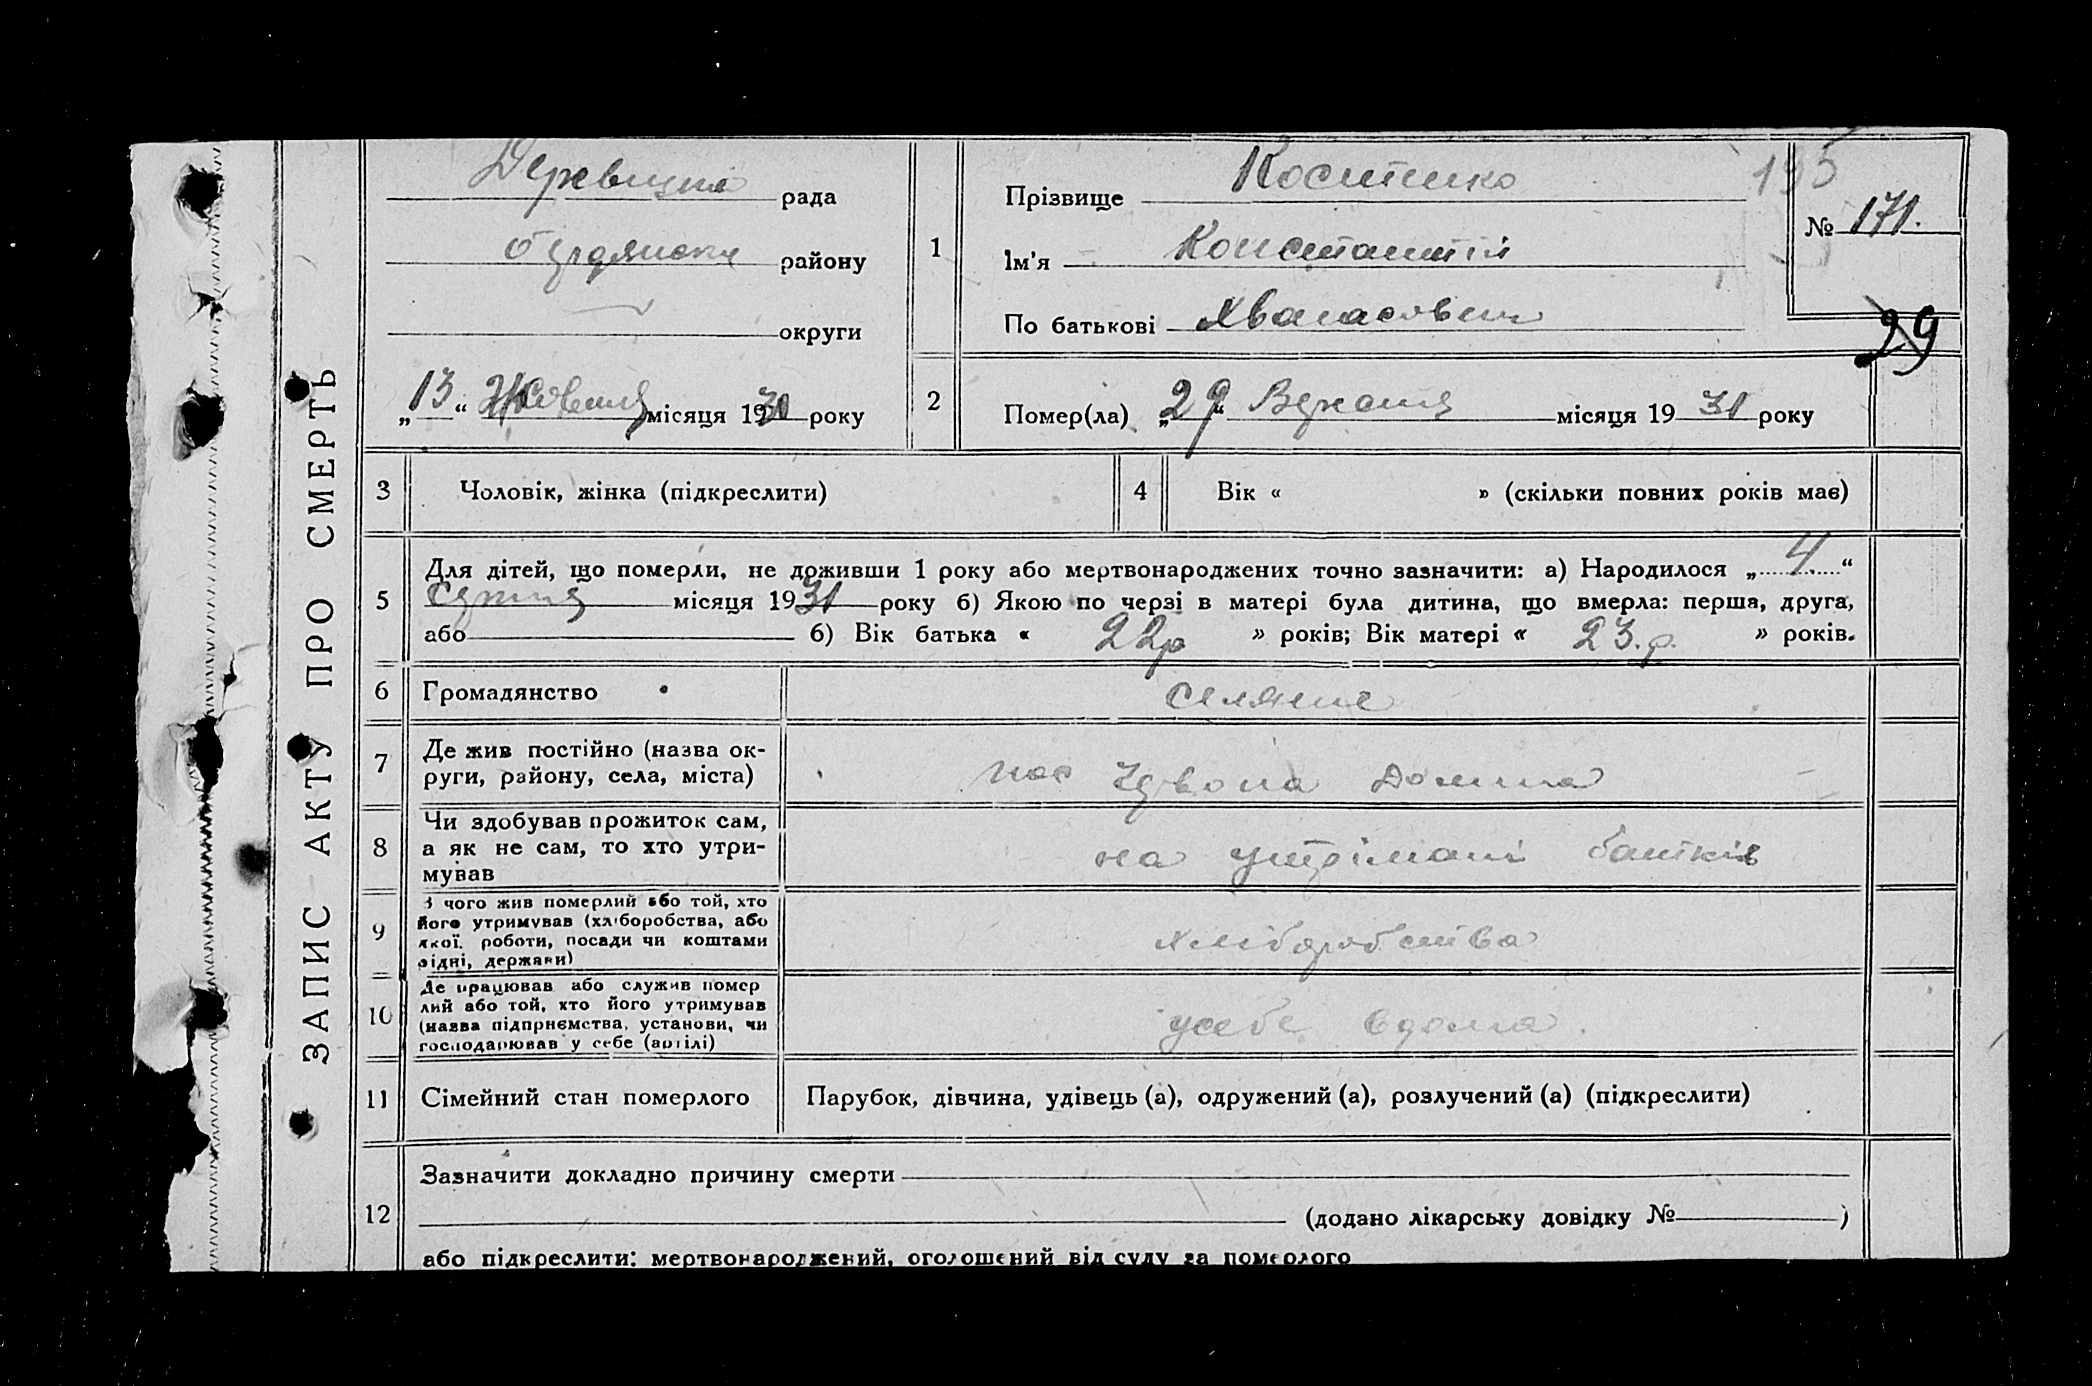 ЗАПИС АКТУ ПРО СМЕРТЬ
рада
району
округи
„13“ Жовтня місяця 19 року
1
Прізвище Костенко
Ім'я Константін
По батькові
195
№ 171.
29
2
Помер(ла) „29“ Вересня місяця 1931 року
3
Чоловік, жінка (підкреслити)
4
Вік « » (скільки повних років має)
5
Для дітей, що померли, не доживши 1 року або мертвонароджених точно зазначити: а) Народилося „4“
місяця 1931 року б) Якою по черзі в матері була дитина, що вмерла: перша, друга,
або б) Вік батька « 22р » років; Вік матері « 23.р. » років.
6
Громадянство
селяне
7
Де жив постійно (назва ок-
руги, району, села, міста)
Долина
8
Чи здобував прожиток сам,
а як не сам, то хто утри-
мував
на утрімані батків
9
З чого жив померлий або той, хто
його утримував (хліборобства, або
якої роботи, посади чи коштами
рідні, держави)
хліборобства
10
Де працював або служив помер
лий або той, хто його утримував
(назва підприємства, установи, чи
господарював у себе (артілі)
усебе вдома.
11
Сімейний стан померлого
Парубок, дівчина, удівець (а), одружений (а), розлучений (а) (підкреслити)
12
Зазначити докладно причину смерти
(додано лікарську довідку № )
або підкреслити: мертвонароджений, оголошений від суду за померлого